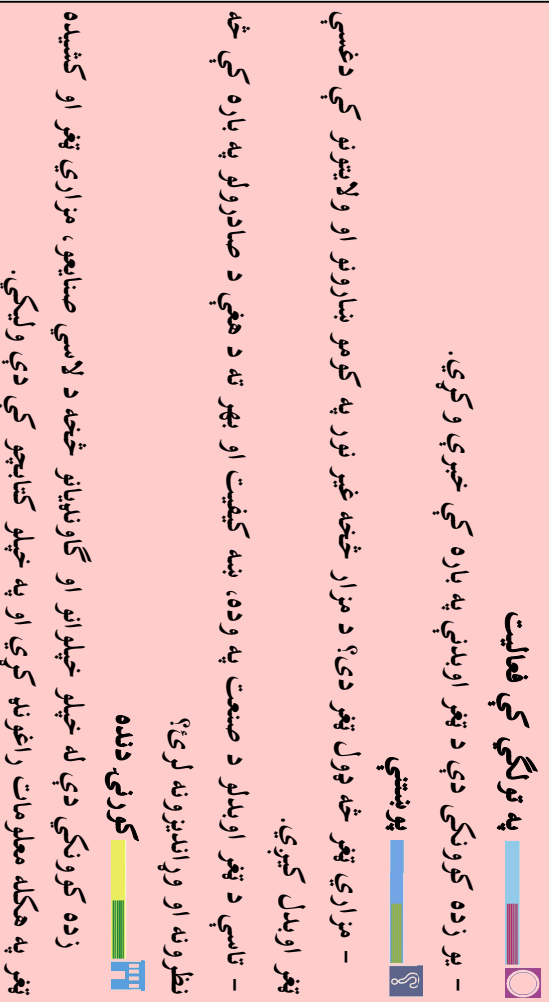 په ټولګي کې فعالیت
- یو زده کوونکی دې د ټغر اوبدنې په باره کې خبرې وکړي.
پوښتنې
- مزاری ټغر څه ډول ټغر دی؟ د مزار څخه غیر نور په کومو ښارونو او ولایتونو کې دغسې
ټغر اوبدل کیږي.
- تاسې د ټغر اوبدلو د صنعت په وده، ښه کیفیت او بهر ته د هغې د صادرولو په باره کې څه
نظرونه او وړاندیزونه لرئ؟
کورنۍ دنده
زده کوونکي دې له خپلو خپلوانو او ګاونډیانو څخه د لاسي صنایعو، مزاري ټغر او کشیده
ټغر په هکله معلومات راغونډ کړي او په خپلو کتابچو کې دې ولیکي.